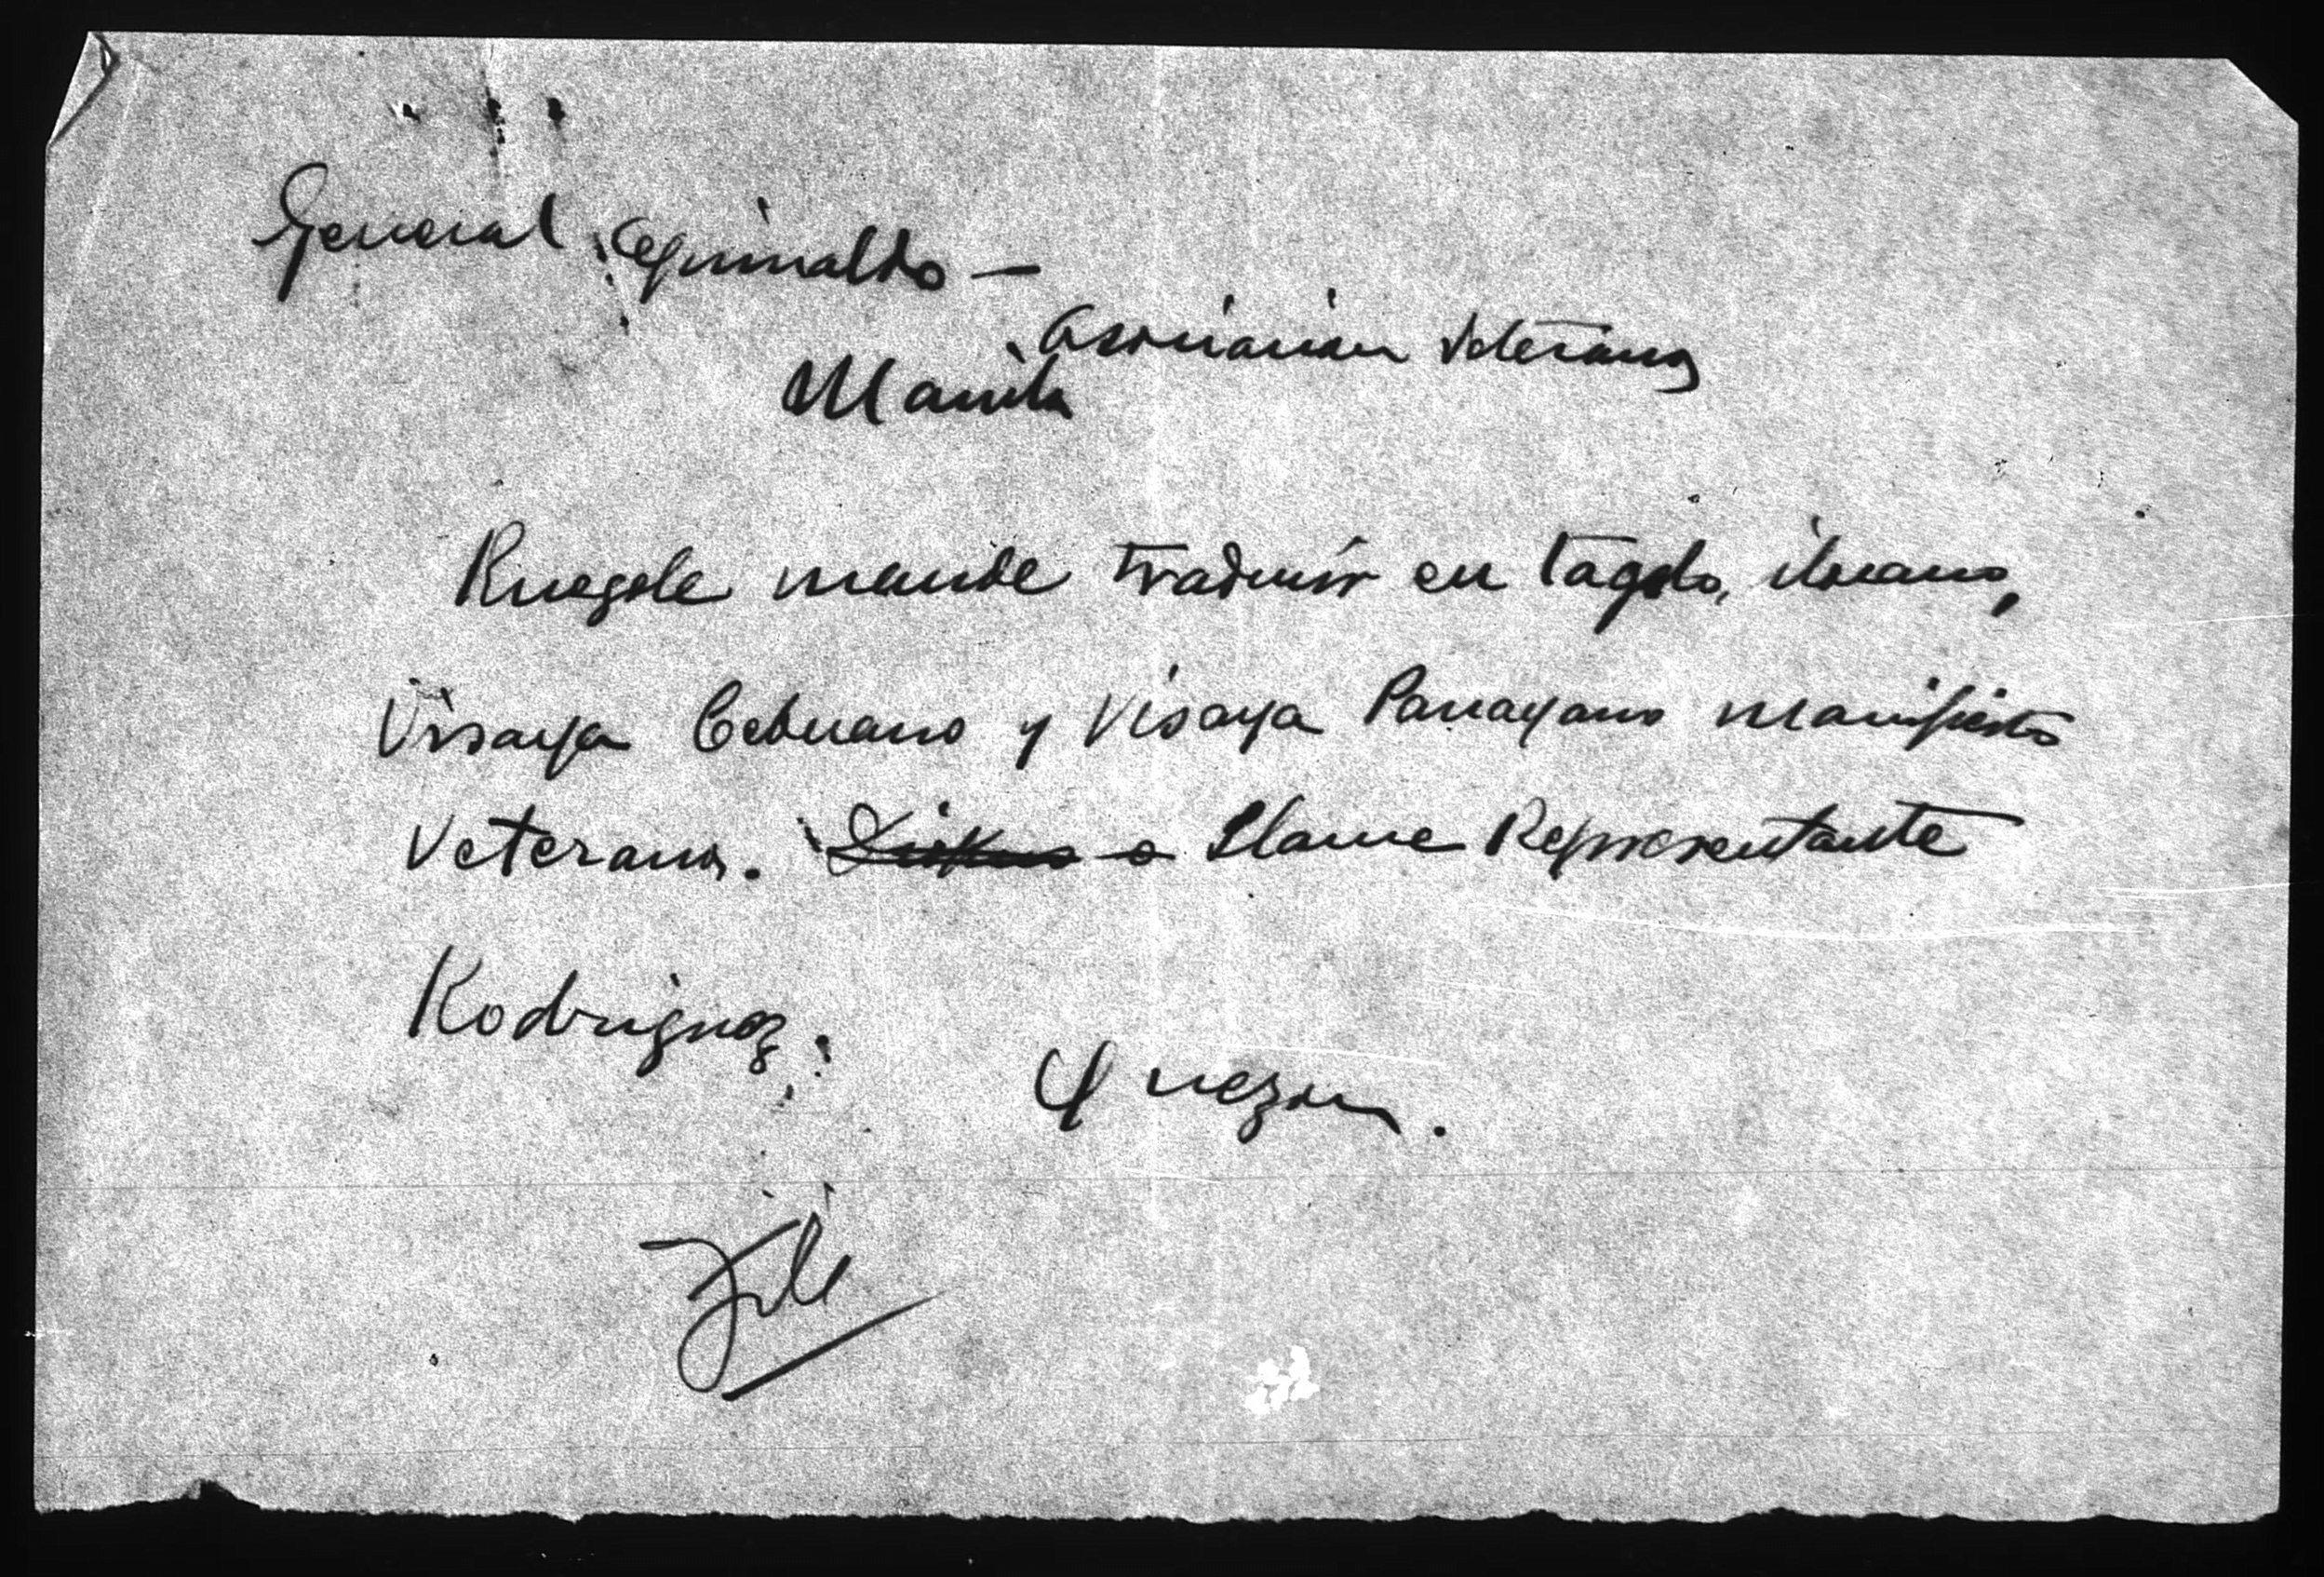 General Aguinaldo —
Asociacion Veteranos
Manila
Ruegole mande traducir en tagalo, ilocano,
Visaya Cebuano y Visaya Panayano manifiesto
Veteranos. Llame Representante
Rodriguez.
Quezon.
File